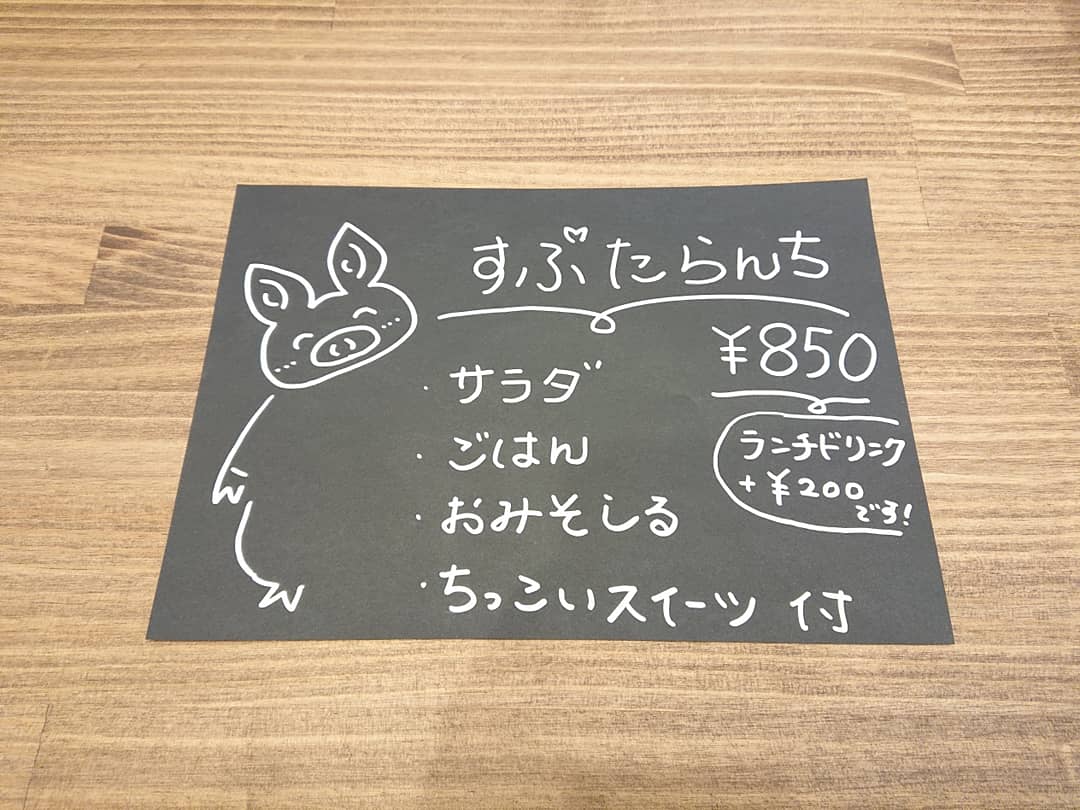 すぶたらんち
¥850
・サラダ
・ごはん
・おみそしる
・ちっこいスイーツ 付
ランチドリンク
+¥200
です!